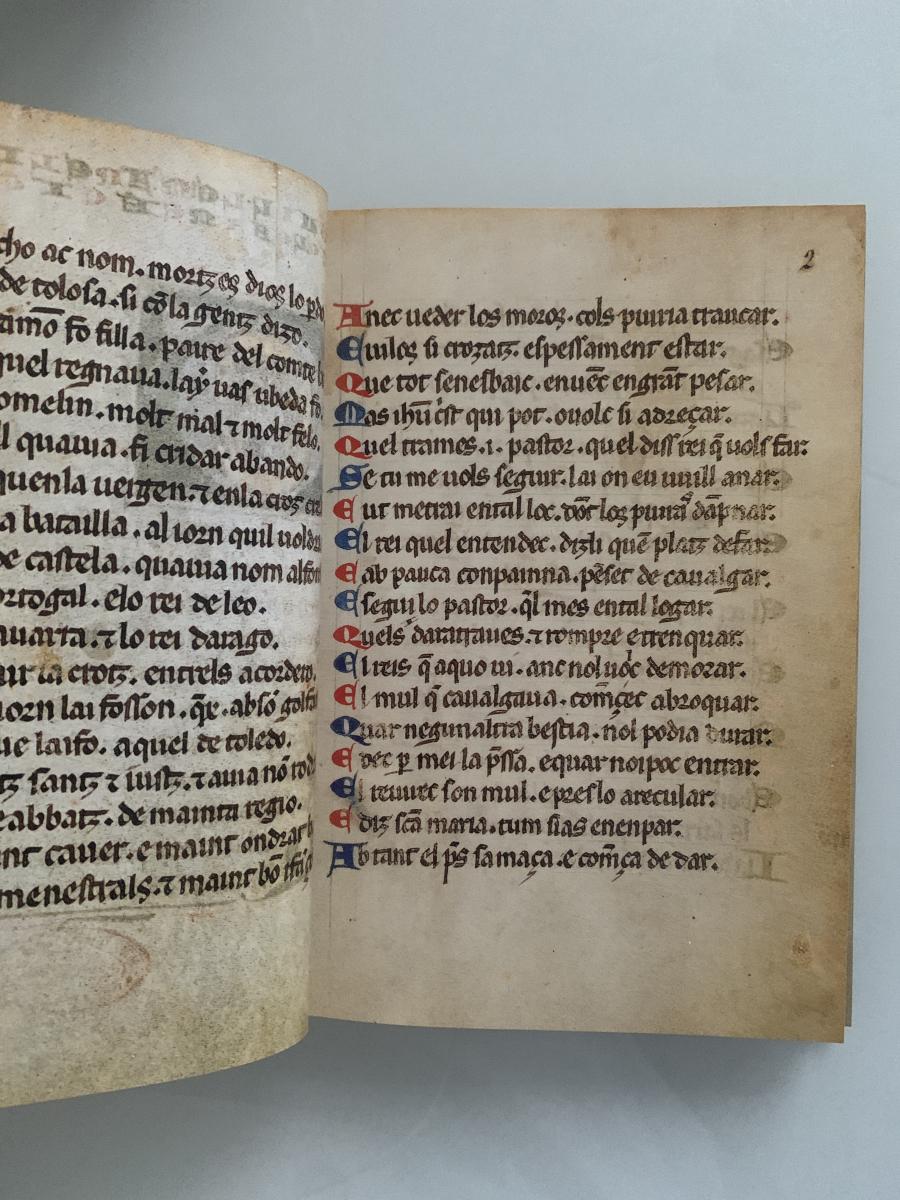 cho ac nom. mortz es dios lo pdo
de tolosa. si cõla gentz dizo.
fo filla. paire del comte
quel regnaua. lay uas ubeda fo.
omelin. molt mal ⁊ molt felo.
ll quauia. fi cridar abando.
quenla uergen. ⁊ enla crotz
a batailla. al iorn quil uoldra
de castela. quauia nom alfon
ortogal. elo rei de leo.
nauarra. ⁊ lo rei darago.
la crotz. entrels acordero.
iorn lai fosson. q̃r. absõ golfa
ue laifo. aquel de toledo.
tz santz ⁊ iustz. ⁊ auia nõ rod
e abbatz. de mainta regio.
nt cauer. e maint ondrat
menestrals. ⁊ maint bõ
2
Anet ueder los moros. cols puiria traucar.
Euilos si crozatz. espessament estar.
Que tot senesbaic. enuẽc engrãt pesar.
Mas ihũ c̃st qui pot. ouolc si adreçar.
Quel trames .i. pastor. quel diss rei q̃ uols far.
Se tu me uols seguir. lai on eu uuill anar.
Eut metrai ental loc. dõt los puiras dãpnar.
El rei quel entendec. dizli quẽ platz defar.
E ab pauca conpainna. pẽset de caualgar.
E segui lo pastor. q̃l mes ental logar.
Quels daratraues. ⁊ rompre etrenquar.
El reis q̃ aquo ui. anc noluolc demorar.
El mul q̃ caualgaua. comẽçet abroquar.
Quar negunaltra bestia. nol podia durar.
E dec p̱ mei la p̃ssa. equar noipoc entrar.
El reuirec son mul. e preslo arecular.
E diz scã maria. tum sias enenpar.
Ab tant el p̃s sa maça. e comẽça de dar.